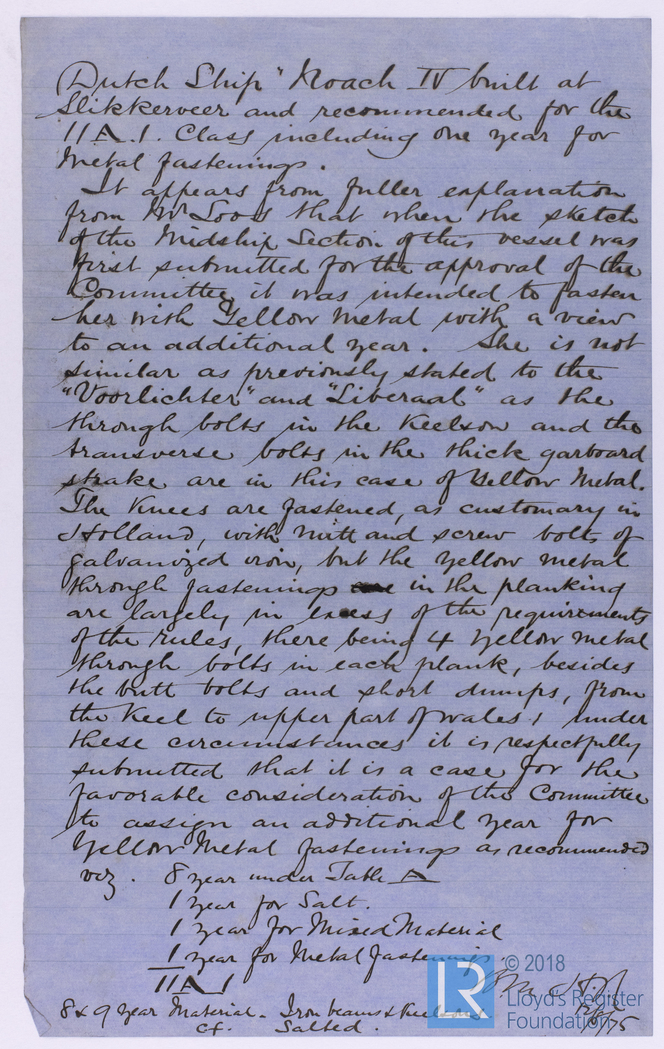 Dutch Ship "Noach IV built at
Slikkerveer and recommended for the
11 A.1. Class including one year for
Metal fastenings.
It appears from fuller explanation
from Mr Loos that when the sketch
of the Midship Section of this vessel was
first submitted for the approval of the
Committee, it was intended to fasten
her with Yellow Metal with a view
to an additional year. She is not
similar as previously stated to the
"Voorlichter" and "Liberaal" as the
through bolts in the Keelson and the
transverse bolts in the thick garboard
strake are in this case of Yellow Metal.
The Knees are fastened, as customary in
Holland, with nutt and screw bolts of
galvanized iron, but the yellow metal
through fastenings in the planking
are largely in excess of the requirements
of the rules, there being 4 Yellow metal
through bolts in each plank, besides
the butt bolts and short dumps, from
the Keel to upper part of wales; under
these circumstances it is respectfully
submitted that it is a case for the
favorable consideration of the Committee
to assign an additional year for
Yellow Metal fastenings as recommended
viz. 8 year under Table A
1 year for Salt.
1 year for Mixed Material
1 year for Metal fastenings.
11 A 1
8 & 9 year Material. Iron beams &
cf. Salted.
/75
LR © 2018
Lloyd's Register
Foundation